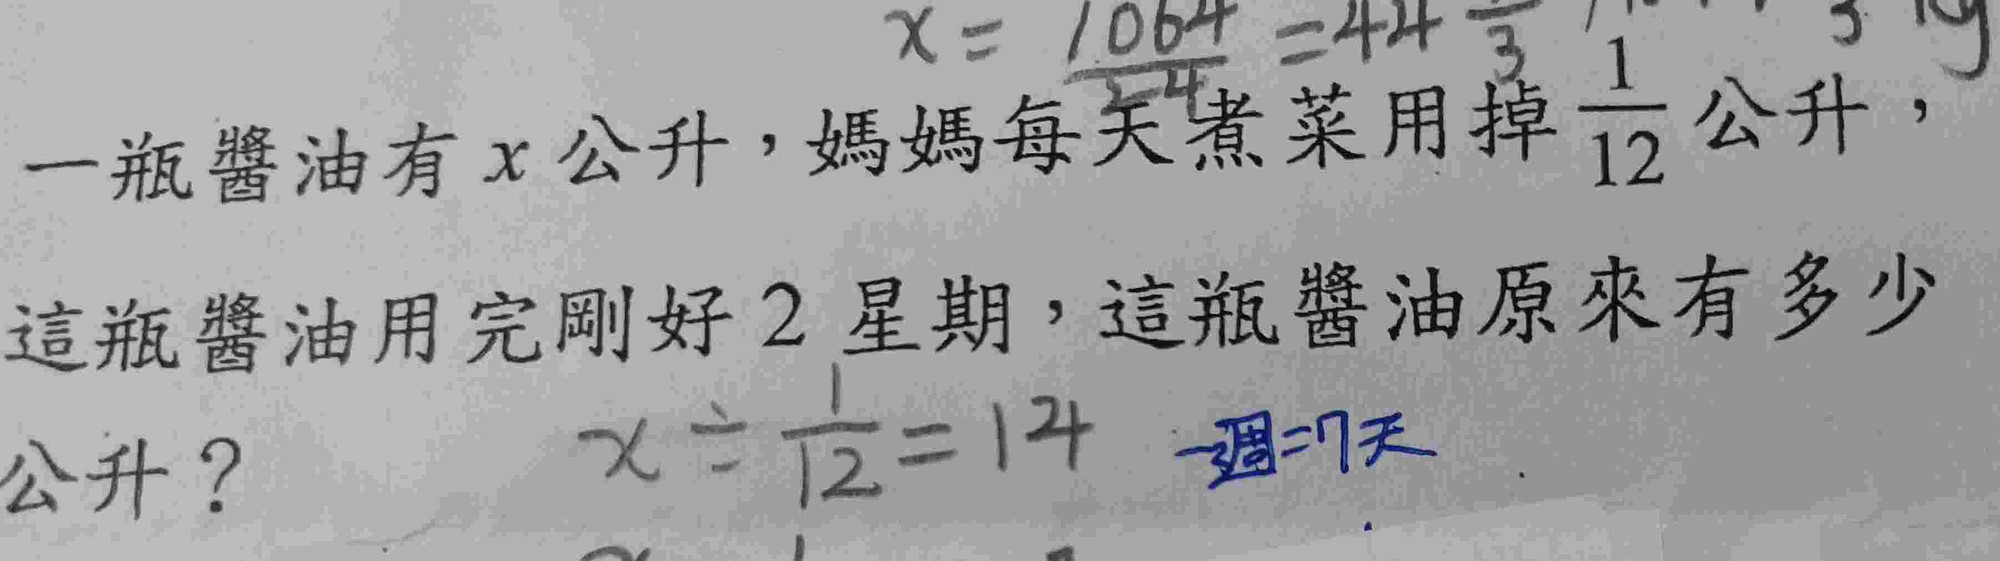 x = 1064/24 = 44 1/3
一瓶醬油有 x 公升，媽媽每天煮菜用掉 1/12 公升，
這瓶醬油用完剛好 2 星期，這瓶醬油原來有多少
公升？
x ÷ 1/12 = 14 一週=7天